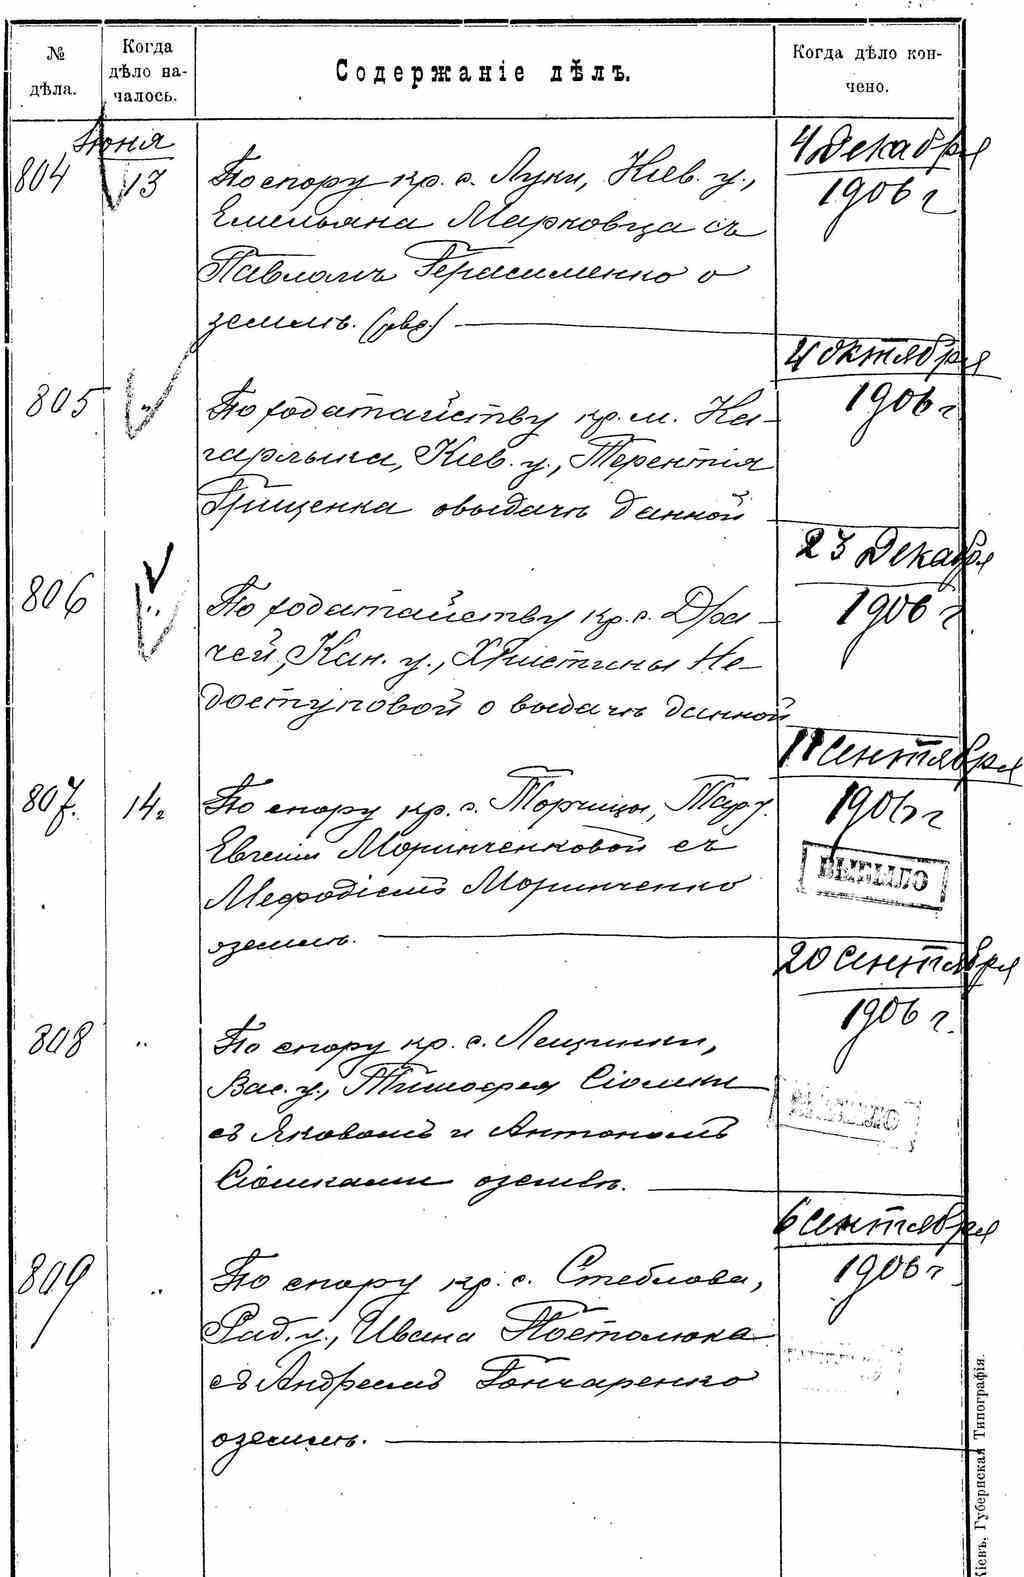 № дѣла.
Когда дѣло на-
чалось.
Содержаніе дѣлъ.
Когда дѣло кон-
чено.
Июня
804
13
По спору кр. с. Луки, Кіев. у.,
Емельяна Марковца съ
Павломъ Герасименко о
землѣ.
4 Декабря
1906 г
805
"
По ходатайству кр. м. Ка-
гарлыка, Кіев. у., Терентія
Грищенка о выдачѣ данной
4 октября
1906 г
806
"
По ходатайству кр. с. Дра-
чей, Кан. у., Христины Не-
доступовой о выдачѣ данной
23 Декабря
1906 г
807.
14
По спору кр. с. Торчицы, Тар. у.
Евгеніи Моринченковой съ
Мефодіемъ Моринченко
о землѣ.
11 сентября
1906 г
808
"
По спору кр. с. Лещинки,
Вас. у., Тимофея Сіомки
съ Яковомъ и Антономъ
Сіомками о землѣ.
20 сентября
1906 г.
809
"
По спору кр. с. Стеблова,
Рад. у., Ивана Постолюка
съ Андреемъ Гончаренко
о землѣ.
6 сентября
1906 г
Кіевъ. Губернская Типографія.